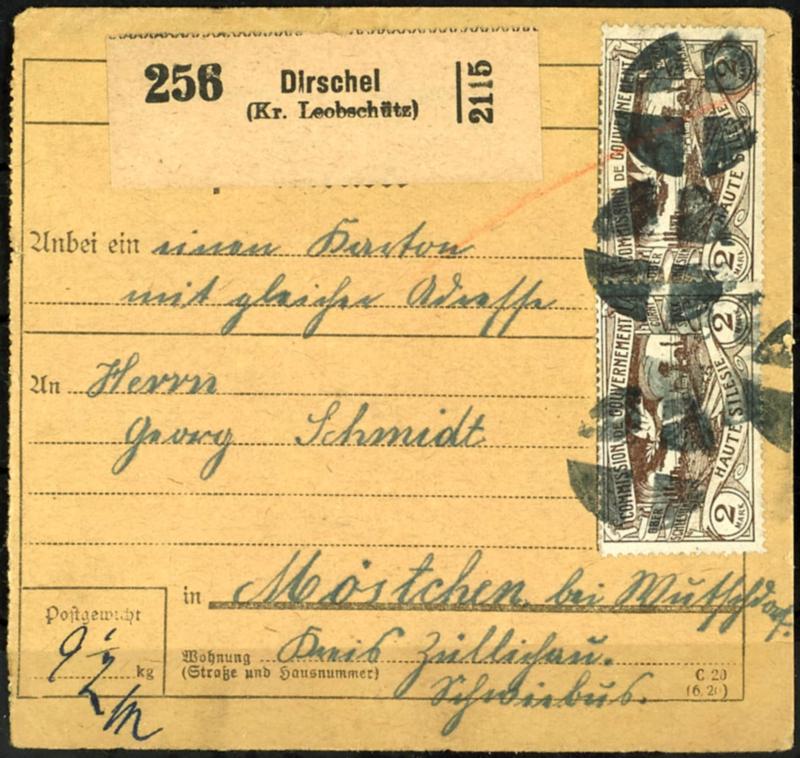 256 Dirschel
(Kr. Leobschütz)
2115
Anbei ein einen Karton
mit gleicher Adresse
An Herrn
Georg Schmidt
in Möstchen bei Wutschdorf.
Postgewicht
9 1/2 kg
Wohnung Kreis Züllichau.
(Straße und Hausnummer)
Schwiebus.
C 20
(6. 20)
COMMISSION DE GOUVERNEMENT
HAUTE SILESIE
2 MARK
2
OBER
COMMISSION DE GOUVERNEMENT
HAUTE SILESIE
2 MARK
2 MARK
OBER